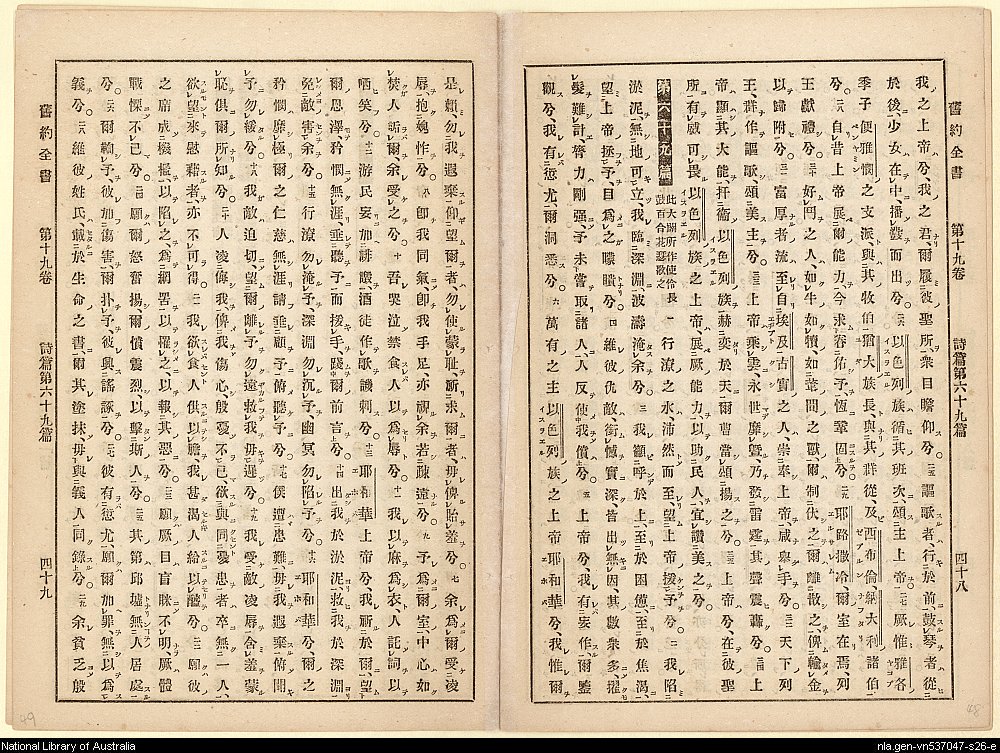 舊約全書 第十九卷 詩篇第六十九篇 四十八
我之上帝兮、我之君、爾履彼聖所、衆目瞻仰兮。二五謳歌者行於前、鼓琴者從
於後、少女在中、播鼗而出兮。二六以色列族、循其班次、頌主上帝。二七厥惟雅各
季子便雅憫之支派、與其牧伯、猶大族長、與其群從、及西布倫納大利諸伯
兮。二八自昔上帝展爾能力、今求眷佑予、恆鞏固兮。二九耶路撒冷爾室在焉、列
王獻禮兮。三十好鬥之人、如牛如犢、如葦間之獸、爾制伏之、爾離散之、俾輸金
以歸附兮。三一富厚者流、至自埃及古實之人、崇奉上帝、咸舉手兮。三二天下列
王、群作謳歌、頌美主兮。三三上帝乘雲、永世靡曁、乃發雷霆、其聲震轟兮。三四上
帝顯其大能、扞衞以色列族、赫奕於天、爾曹當頌揚之兮。三五上帝兮、在彼聖
所、有威可畏、以色列族之上帝、展厥能力、以助民人、宜讚美之兮。
第六十九篇 此大闢所作使伶長鼓百合花瑟歌之 一行潦之水、沛然而至、望上帝援予兮。二我陷
淤泥、無地可立、我臨深淵、波濤淹余兮。三我籲呼於上、至於困憊、至於焦渴、
望上帝拯予、目爲之矇矓兮。四維彼仇敵、銜憾實深、皆出無因、其數衆多、擢
髮難計、膂力剛强、予未嘗取諸人、人反使我償兮。五上帝兮、我有妄作、爾鑒
觀兮、我有愆尤、爾洞悉兮。六萬有之主以色列族之上帝耶和華兮、我惟爾
是賴、勿我遐棄、仰望爾者、勿使蒙恥、祈求爾者、毋俾貽羞兮。七余爲爾受凌
辱、抱媿怍兮。八卽我同氣、卽我手足、亦視余若疎遠兮。九予爲爾室、中心如
焚、人詬爾、余受之兮。十吾哭泣禁食、人以爲辱兮。十一我以麻爲衣、人託詞以
哂笑兮。十二游民妄加誹謗、酒徒作歌譏刺兮。十三耶和華上帝兮、我祈於爾、望
爾恩澤、矜憫無涯、垂聽予、而援手、踐爾前言兮。十四出我於淤泥、救我於深淵、
免敵害余兮。十五行潦勿淹予、深淵勿沉予、幽冥勿陷予兮。十六耶和華兮、爾之
矜憫靡極、爾之仁慈無涯、請垂顧予、俯聽予兮。十七僕遭患難、毋我遐棄、俯聞
予、勿緩兮。十八我敵迫切、望爾離予、勿遠、救我毋遲兮。十九我受敵凌辱、含羞蒙
恥、俱爾所知兮。二十人凌侮我、俾我傷心、殷憂不已、欲與同憂患者、卒無一人、
欲望來慰藉者、亦不可得。二一我欲食、人供以膽、我甚渴、人給以醯兮。二二願彼
之席、成機檻以陷之、爲網罟以罹之、以報其惡兮。二三願厥目盲眯不明、厥體
戰慄不已兮。二四願爾怒奮揚、爾憤震烈、以擊斯人兮。二五其第邱墟、無人居處
兮。二六爾鞫予、彼加傷害、爾扑予、彼與謠諑兮。二七彼有愆尤、願爾加厥罪、無以爲
義兮。二八維彼姓氏、載於生命之書、爾其塗抹、毋與義人同錄兮。二九余貧乏殷
舊約全書 第十九卷 詩篇第六十九篇 四十九
49
48
National Library of Australia
nla.gen-vn537047-s26-e